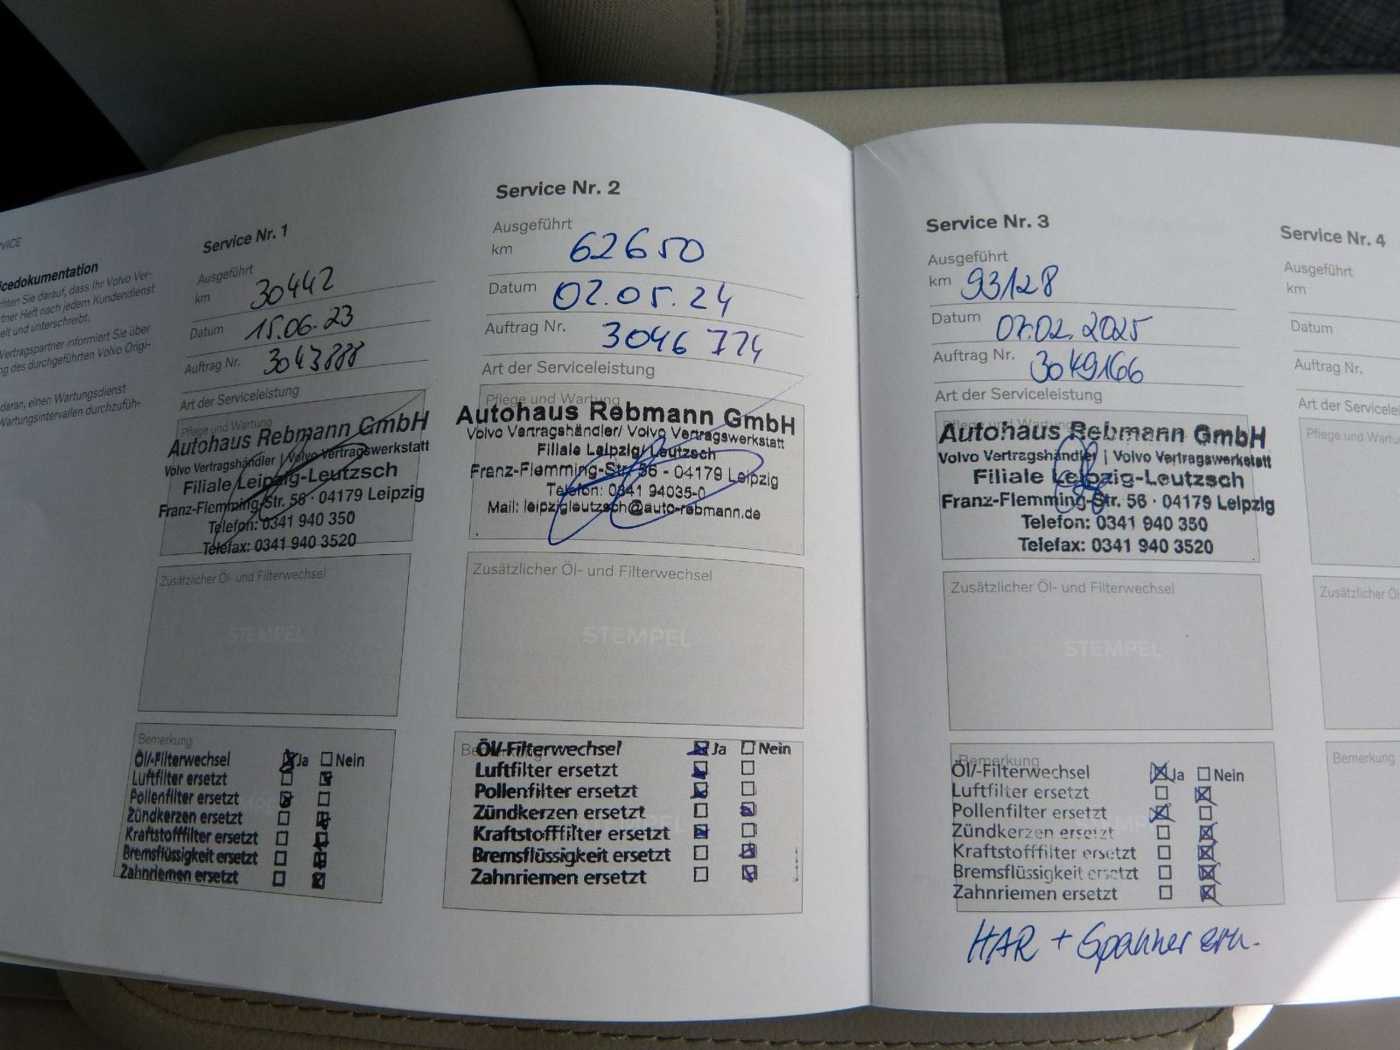 VICE
icedokumentation
hten Sie darauf, dass Ihr Volvo Ver-
rtner Heft nach jedem Kundendienst
elt und unterschreibt.
Vertragspartner informiert Sie über
ng des durchgeführten Volvo Origi-
daran, einen Wartungsdienst
Wartungsintervallen durchzufüh-
Service Nr. 1
Ausgeführt
km 30442
Datum 15.06.23
Auftrag Nr. 3043888
Art der Serviceleistung
Pflege und Wartung
Autohaus Rebmann GmbH
Volvo Vertragshändler | Volvo Vertragswerkstatt
Filiale Leipzig-Leutzsch
Franz-Flemming-Str. 56 · 04179 Leipzig
Telefon: 0341 940 350
Telefax: 0341 940 3520
Zusätzlicher Öl- und Filterwechsel
STEMPEL
Bemerkung
Öl/-Filterwechsel Ja Nein
Luftfilter ersetzt
Pollenfilter ersetzt
Zündkerzen ersetzt
Kraftstofffilter ersetzt
Bremsflüssigkeit ersetzt
Zahnriemen ersetzt
Service Nr. 2
Ausgeführt
km 62650
Datum 02.05.24
Auftrag Nr. 3046774
Art der Serviceleistung
Pflege und Wartung
Autohaus Rebmann GmbH
Volvo Vertragshändler/ Volvo Vertragswerkstatt
Filiale Leipzig/ Leutzsch
Franz-Flemming-Str. 56 - 04179 Leipzig
Telefon: 0341 94035-0
Mail: leipzigleutzsch@auto-rebmann.de
Zusätzlicher Öl- und Filterwechsel
STEMPEL
Öl/-Filterwechsel Ja Nein
Luftfilter ersetzt
Pollenfilter ersetzt
Zündkerzen ersetzt
Kraftstofffilter ersetzt
Bremsflüssigkeit ersetzt
Zahnriemen ersetzt
Service Nr. 3
Ausgeführt
km 93128
Datum 07.02.2025
Auftrag Nr. 3049166
Art der Serviceleistung
Autohaus Rebmann GmbH
Volvo Vertragshändler | Volvo Vertragswerkstatt
Filiale Leipzig-Leutzsch
Franz-Flemming-Str. 56 · 04179 Leipzig
Telefon: 0341 940 350
Telefax: 0341 940 3520
Zusätzlicher Öl- und Filterwechsel
STEMPEL
Bemerkung
Öl/-Filterwechsel Ja Nein
Luftfilter ersetzt
Pollenfilter ersetzt
Zündkerzen ersetzt
Kraftstofffilter ersetzt
Bremsflüssigkeit ersetzt
Zahnriemen ersetzt
HAR + Spanner ern.
Service Nr. 4
Ausgeführt
km
Datum
Auftrag Nr.
Art der Servicelei
Pflege und Wartung
Zusätzlicher Öl
Bemerkung